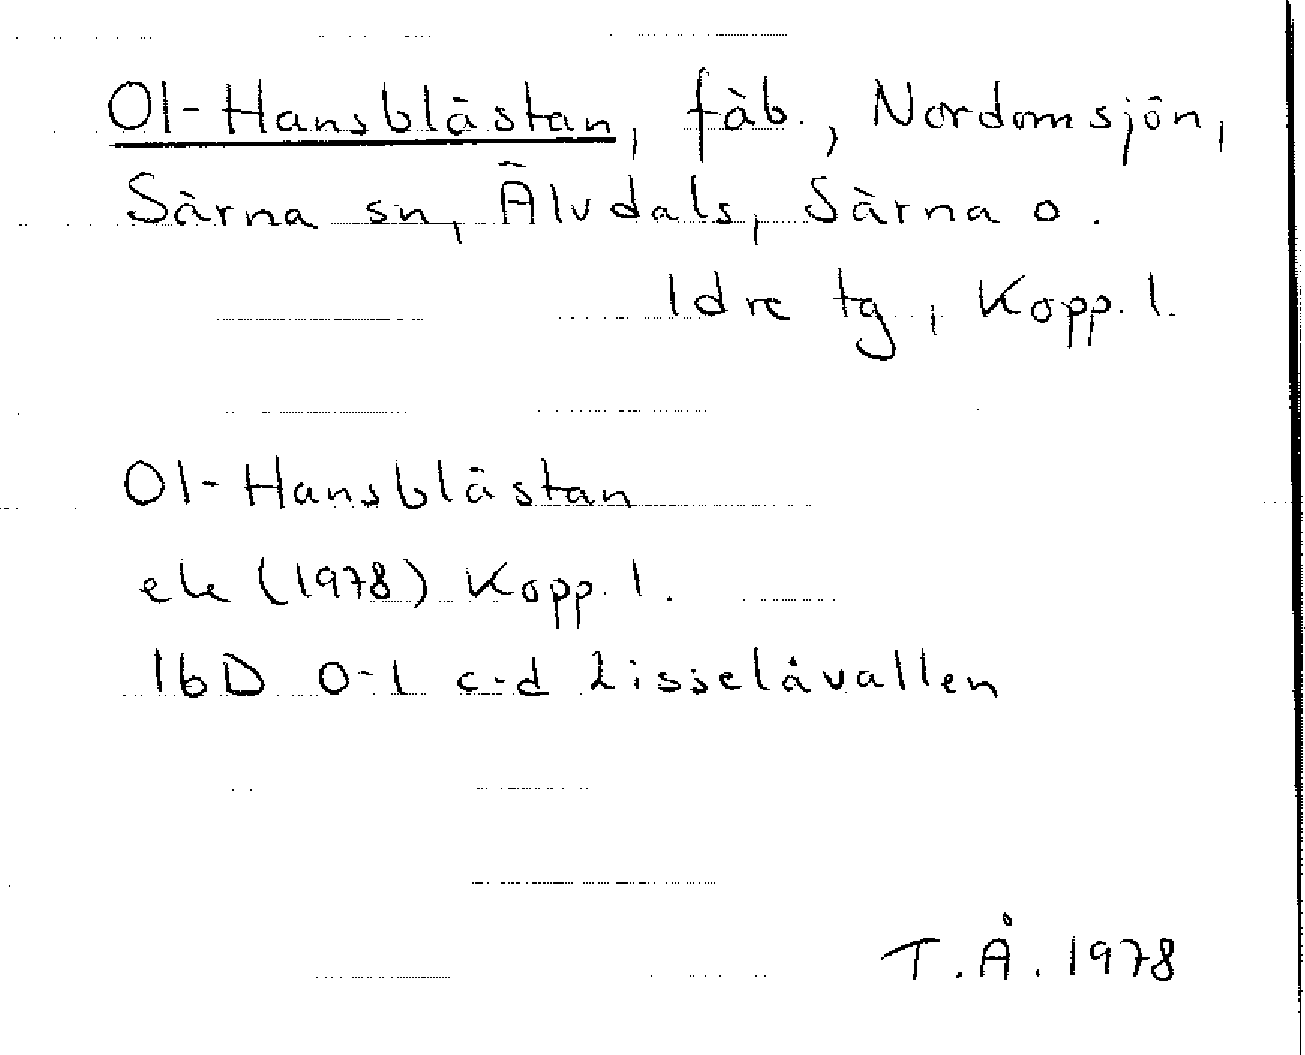 Ol-Hansblästan, fäb., Nordomsjön,
Särna sn, Älvdals, Särna o.
Idre tg, Kopp. l.
Ol-Hansblästan
ek (1978) Kopp. l.
16D 0-1 c-d Lisselåvallen
T.Å. 1978